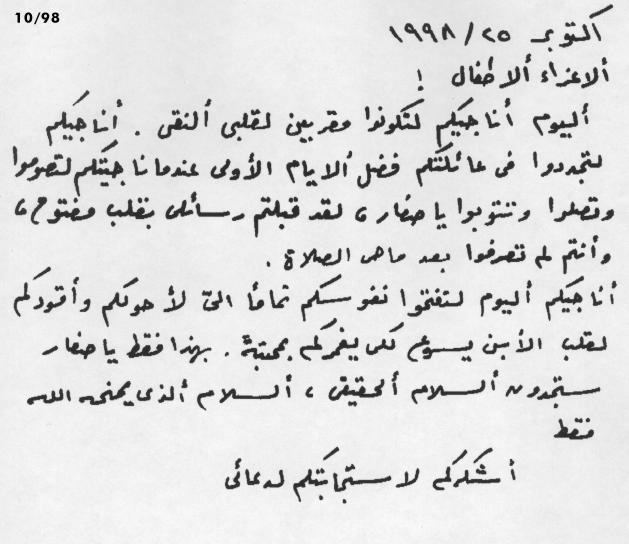 10/98
أكتوبر ٢٥/ ١٩٩٨
ألاعزاء ألاطفال !
أليوم أناجيكم لتكونوا مقربين لقلبي ألنقي . أناجيكم
لتجددوا في عائلتكم فضل ألايام الأولى عندما ناجيتكم لتصوموا
وتصلوا وتتوبوا يا صغار، لقد قبلتم رسائلي بقلب مفتوح،
وأنتم لم تعرفوا بعد ماهي الصلاة .
أناجيكم أليوم لتفتحوا نفوسكم تماماً اليّ لأحولكم وأقودكم
لقلب الأبن يسوع لكي يغمركم بمحبتهً . بهذا فقط يا صغار
ستجدون ألسلام ألحقيقي ، ألسلام ألذي يمنحه الله
فقط
أشكركم لاستجابتكم لدعائي